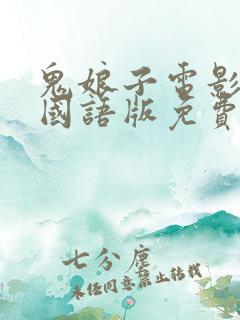 鬼娘子電影
國語版免費
七分塵
未經同意禁止轉載